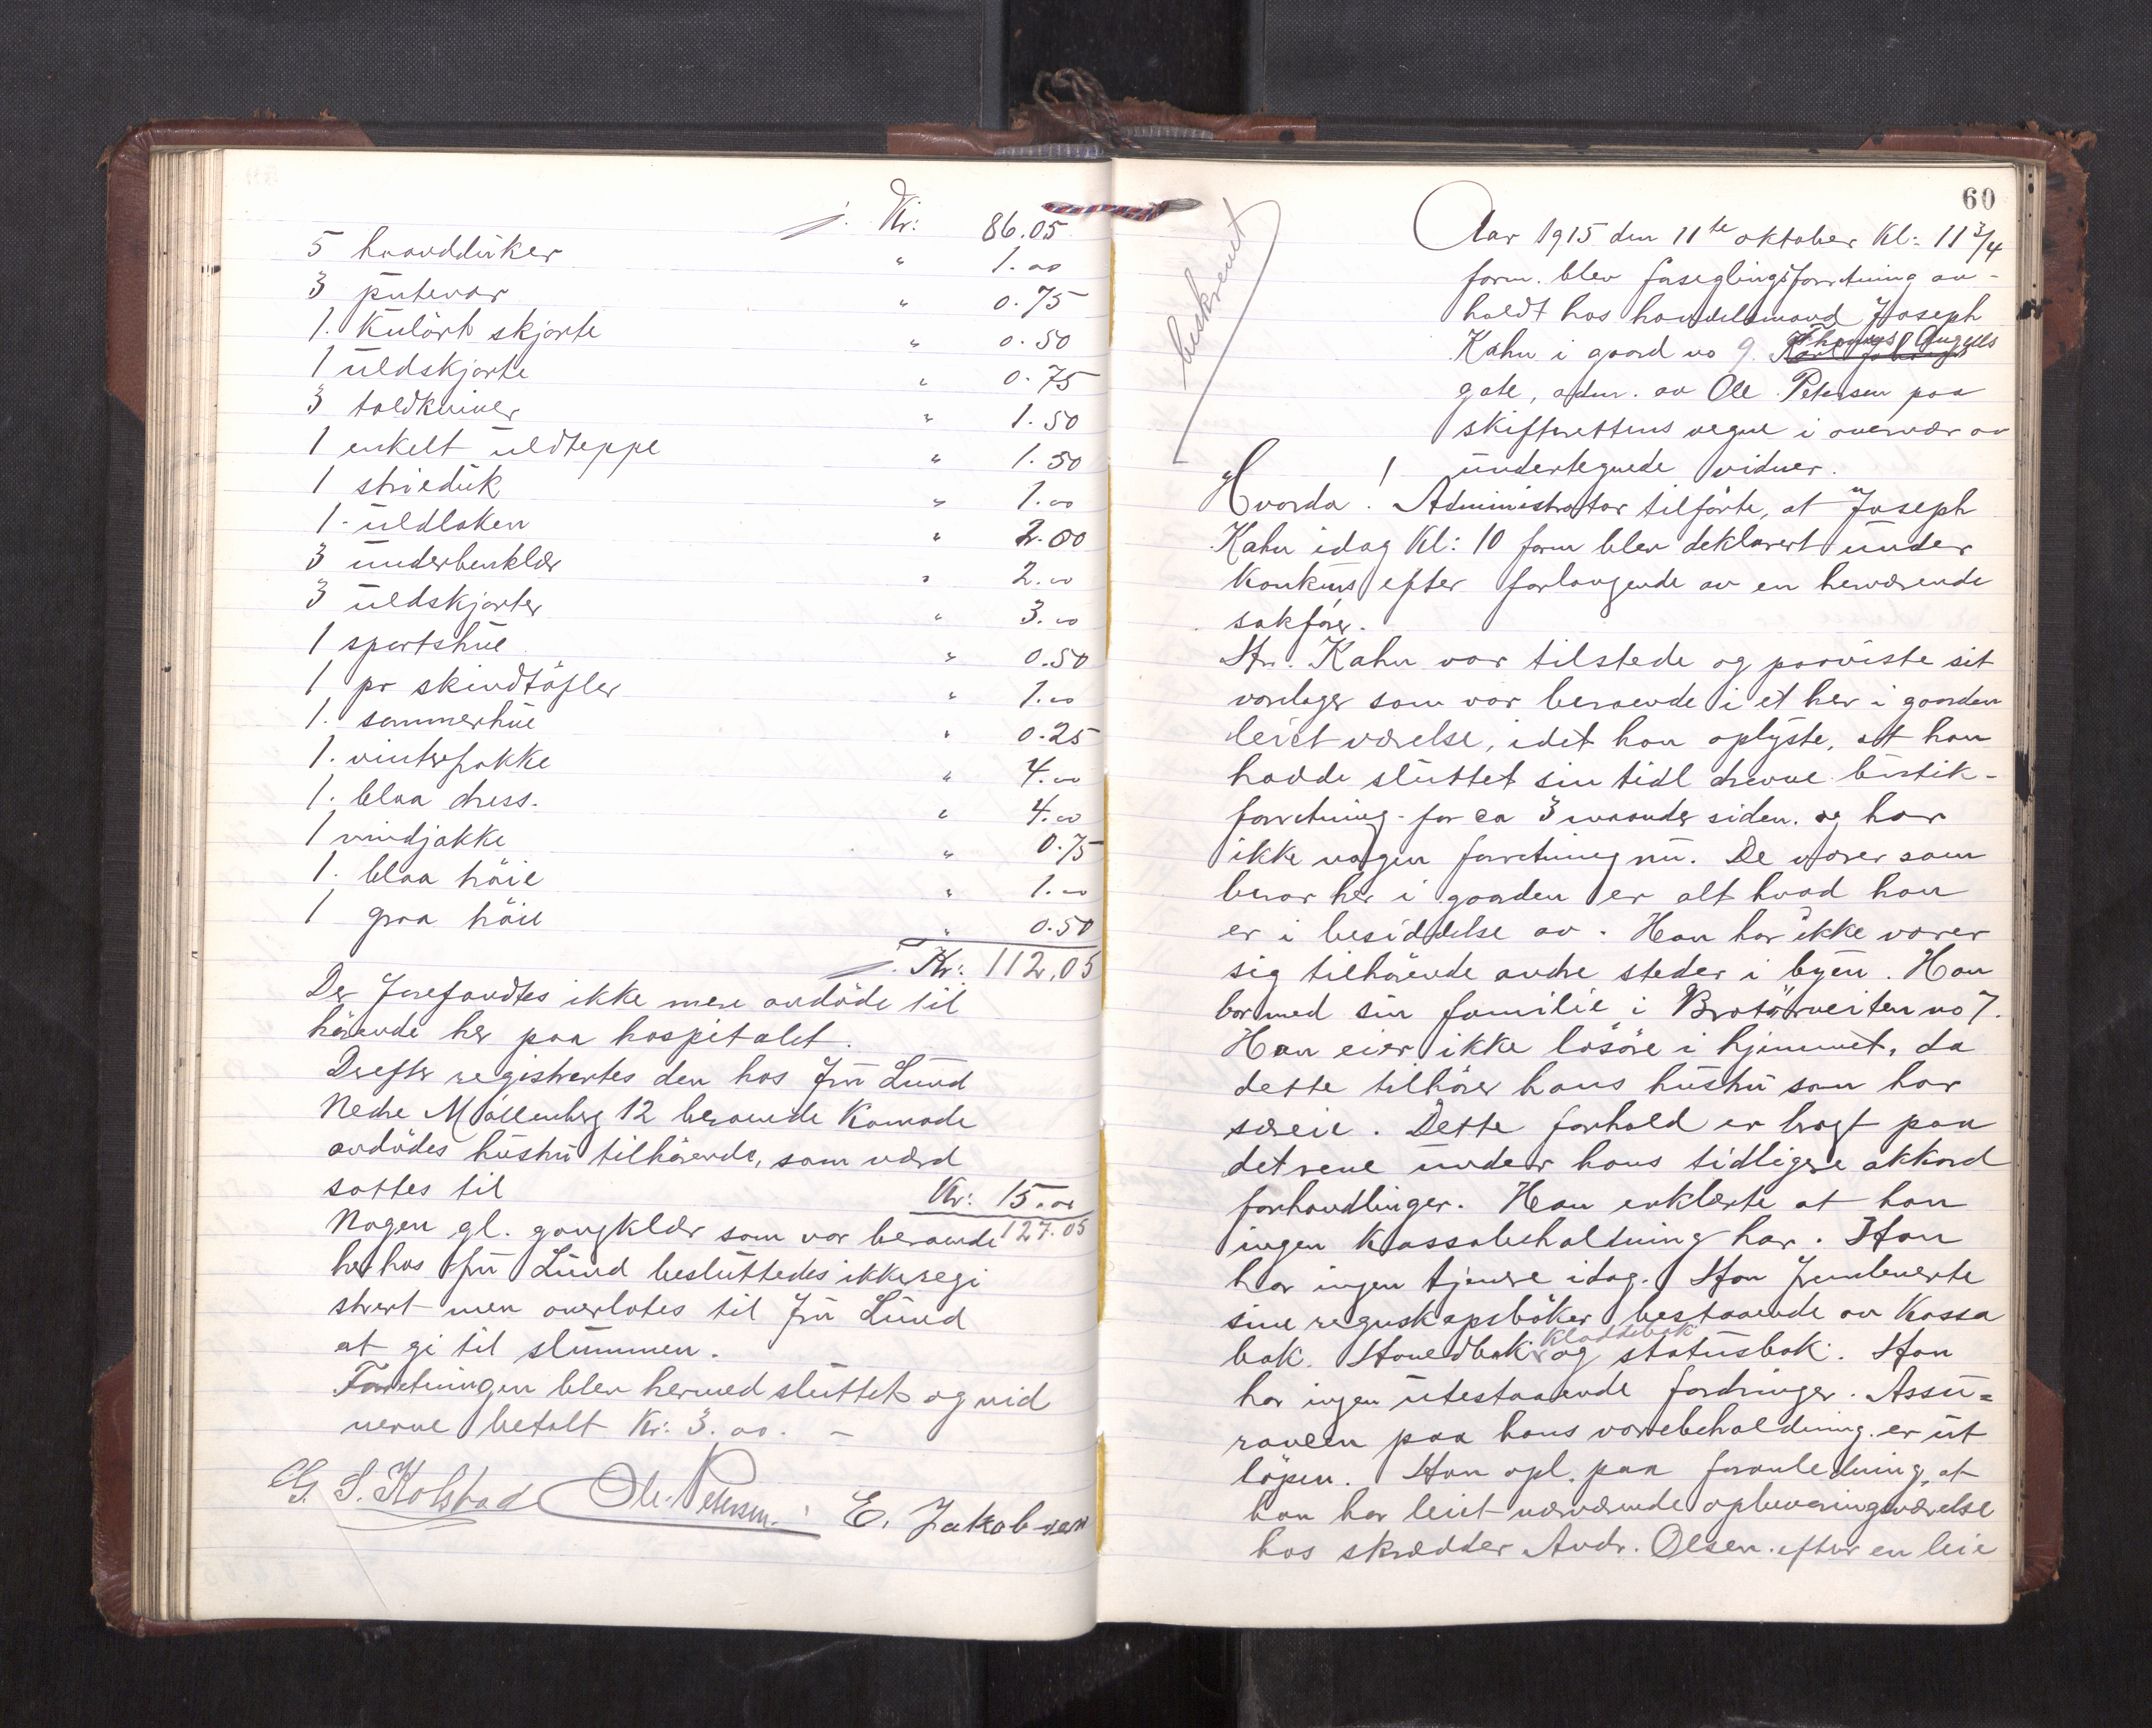 Kr: 86.05
5 haandduker " 1.00
3 putevar " 0.75
1. Kulört skjorte " 0.50
1 uldskjorte " 0.75
3 toldkniver " 1.50
1 enkelt uldteppe " 1.50
1 strieduk " 1.00
1. uldlaken " 2.00
3 underbenklær " 2.00
3 uldskjorter " 3.00
1 sportshue " 0.50
1 pr skindtöfler " 1.00
1. sommerhue " 0.25
1. vinterfrakke " 4.00
1. blaa dress. " 4.00
1 vindjakke " 0.75
1. blaa tröie " 1.00
1 graa tröie " 0.50
Kr: 112,05
Der forefandtes ikke mere avdöde til
hörende her paa hospitalet.
Derefter registrertes den hos fru Lund
Nedre Möllenberg 12 beroende Komode
avdödes hustru tilhörende, som værd
sattes til Kr: 15.00
127.05
Nogen gl. gangklær som var beroende
her hos fru Lund besluttedes ikke regi
strert men overlates til fru Lund
at gi til slummen.
Forretningen blev hermed sluttet og vid
nerne betalt Kr: 3.00. –
G. S. Kolstad Ole Petersen. E. Jakobsen
60
Aar 1915 den 11te oktober Kl: 11 3/4
form. blev forseglingsforretning av-
holdt hos handelsmand Joseph
Kahn i gaard no 9. Thomas Angells
gate, adm. av Ole Petersen paa
skifterettens vegne i overvær av
undertegnede vidner.
Hvorda! Administrator tilförte, at Joseph
Kahn idag Kl: 10 form blev deklarert under
Konkurs efter forlangende av en herværende
sakförer.
Hr. Kahn var tilstede og paaviste sit
varelager som var beroende i et her i gaarden
leiet værelse, idet han oplyste, at han
hadde sluttet sin tidl drevne butik-
forretning for ca 3 maaneder siden. og har
ikke nogen forretning nu. De varer som
beror her i gaarden er alt hvad han
er i besiddelse av. Han har ikke varer
sig tilhörende andre steder i byen. Han
bor med sin familie i Brotörveiten no 7.
Han eier ikke lösöre i hjemmet, da
dette tilhörer hans hustru som har
særeie. Dette forhold er bragt paa
det rene under hans tidligere akkord
forhandlinger. Han erklærte at han
ingen Kassabeholdning har. Han
har ingen tjenere idag. Han frembeverte
sine regnskapsböker bestaaende av Kassa
bok. Hovedbok Kladdebok og statusbok. Han
har ingen utestaaende fordringer. Assu=
rancen paa hans varebeholdning er ut
löpen. Han opl. paa foranledning, at
han har leiet nærværende opbevaringsværelse
hos skrædder Andr. Olsen efter en leie